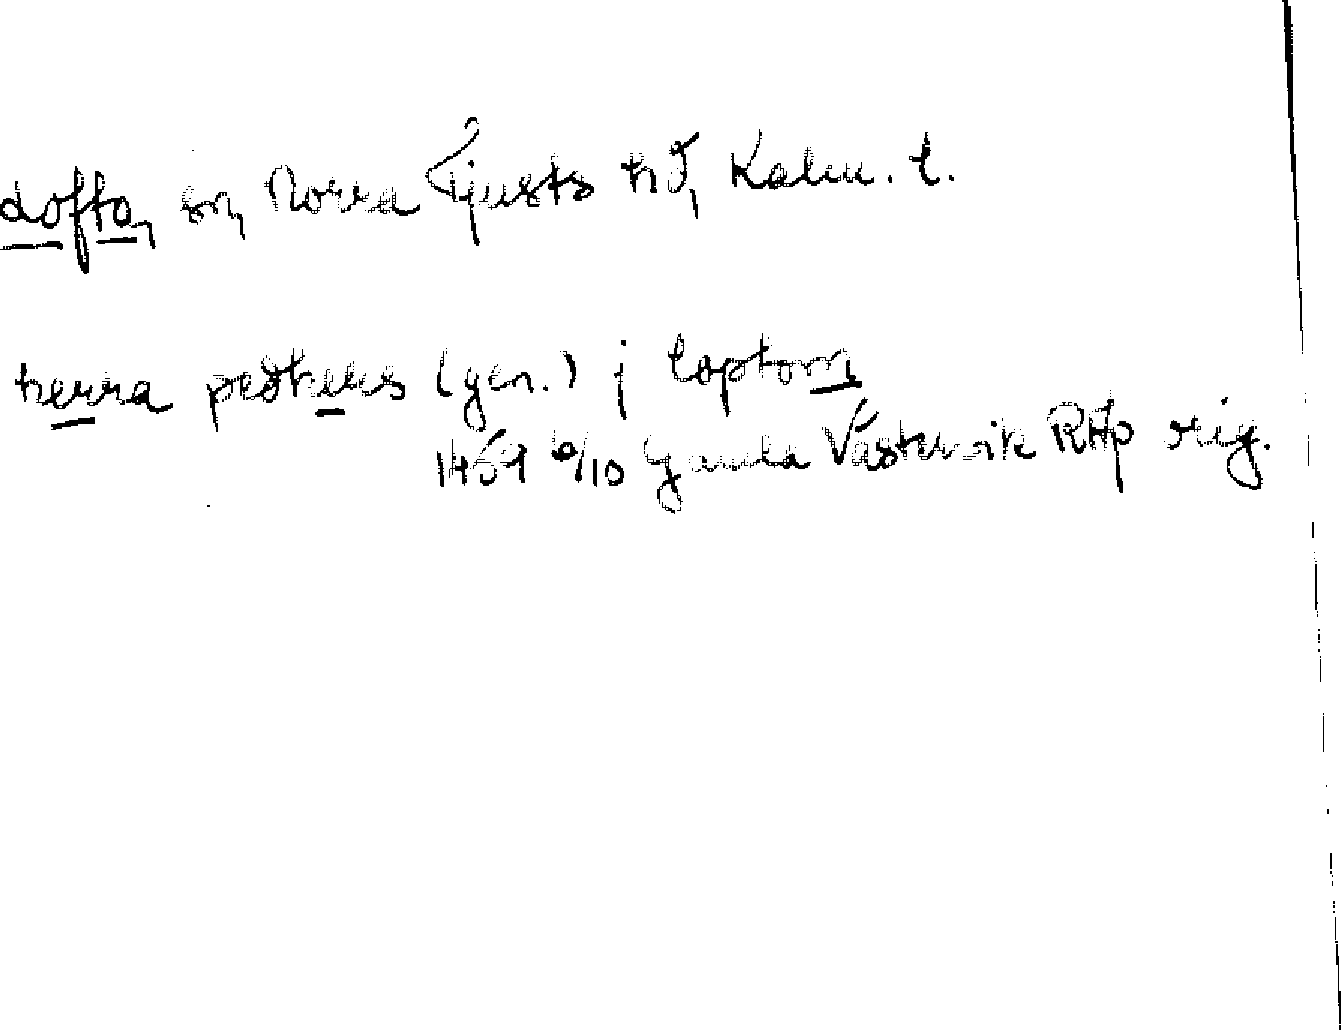 Lofta, sn, Norra Tjusts hd, Kalm. l.
herra pedhers (gen.) j loptom
1459 6/10 Gamla Västervik RAp orig.